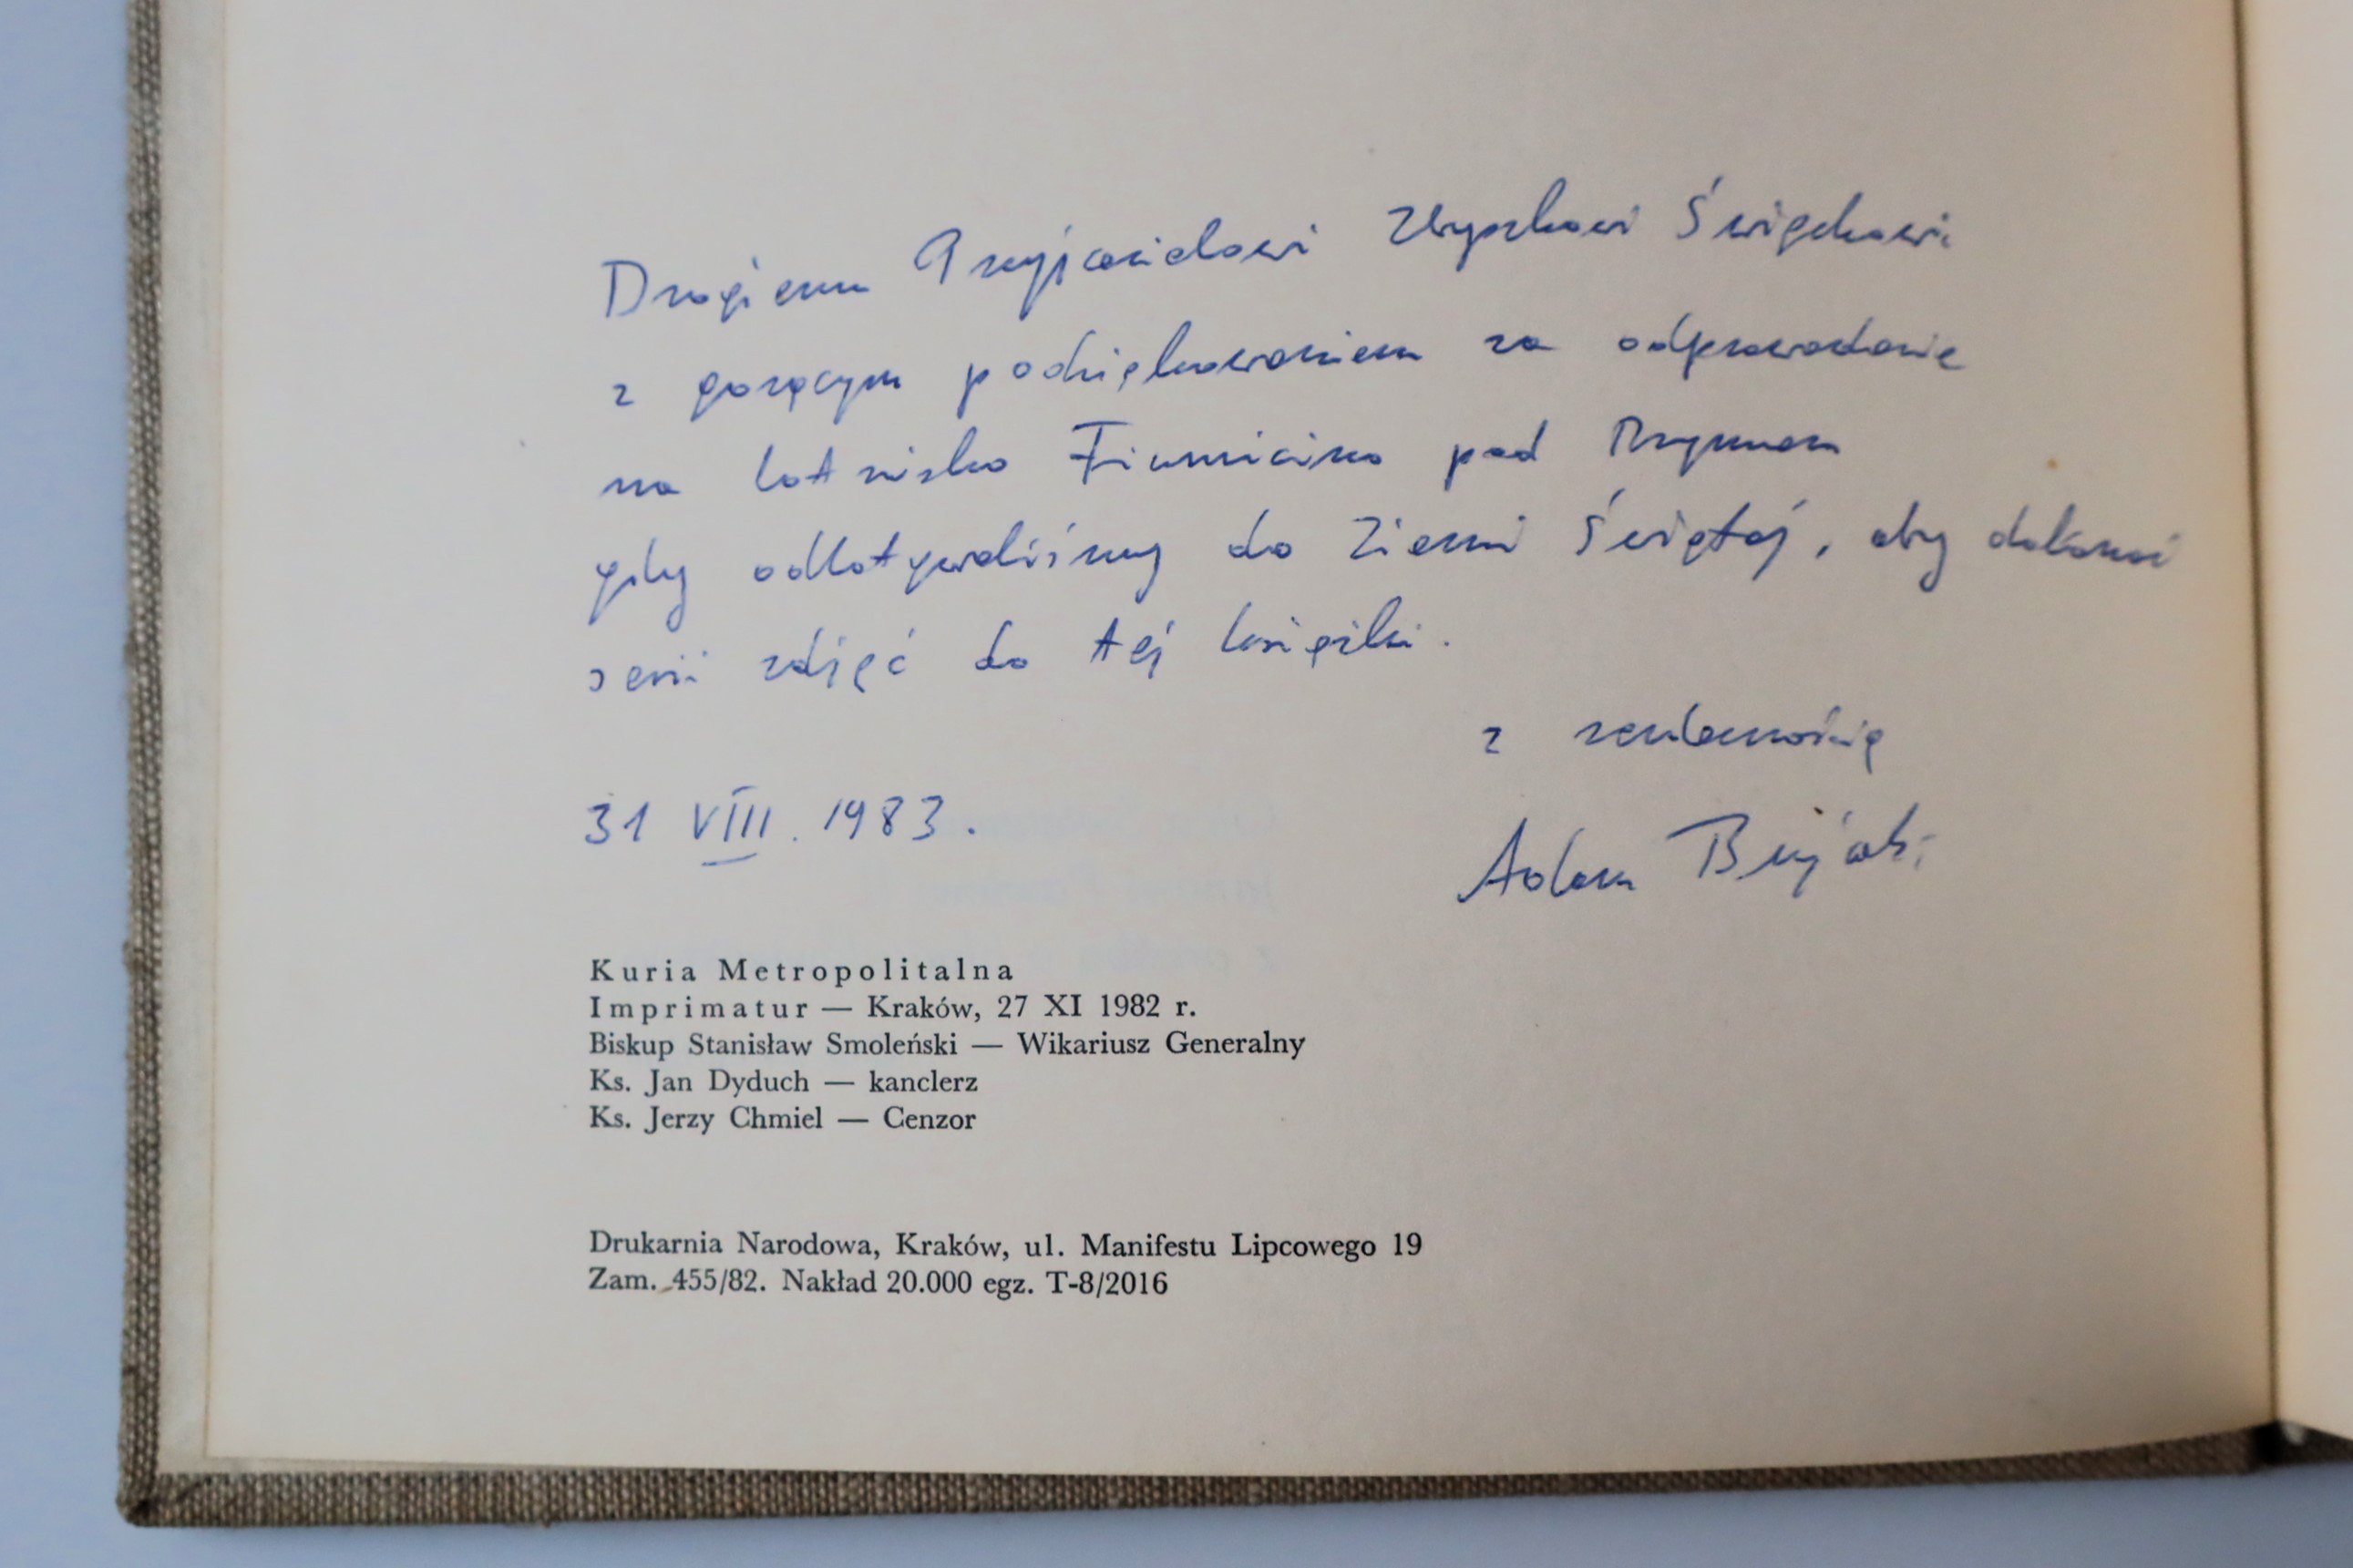 Drogiemu Przyjacielowi Zbyszkowi Święchowi
z gorącym podziękowaniem za odprowadzanie
na lotnisko Fiumicino pod Rzymem
gdy odlatywaliśmy do Ziemi Świętej, aby dokonać
serii zdjęć do tej książki.
z serdecznością
31 VIII. 1983.
Adam Bujak
Kuria Metropolitalna
Imprimatur — Kraków, 27 XI 1982 r.
Biskup Stanisław Smoleński — Wikariusz Generalny
Ks. Jan Dyduch — kanclerz
Ks. Jerzy Chmiel — Cenzor
Drukarnia Narodowa, Kraków, ul. Manifestu Lipcowego 19
Zam. 455/82. Nakład 20.000 egz. T-8/2016